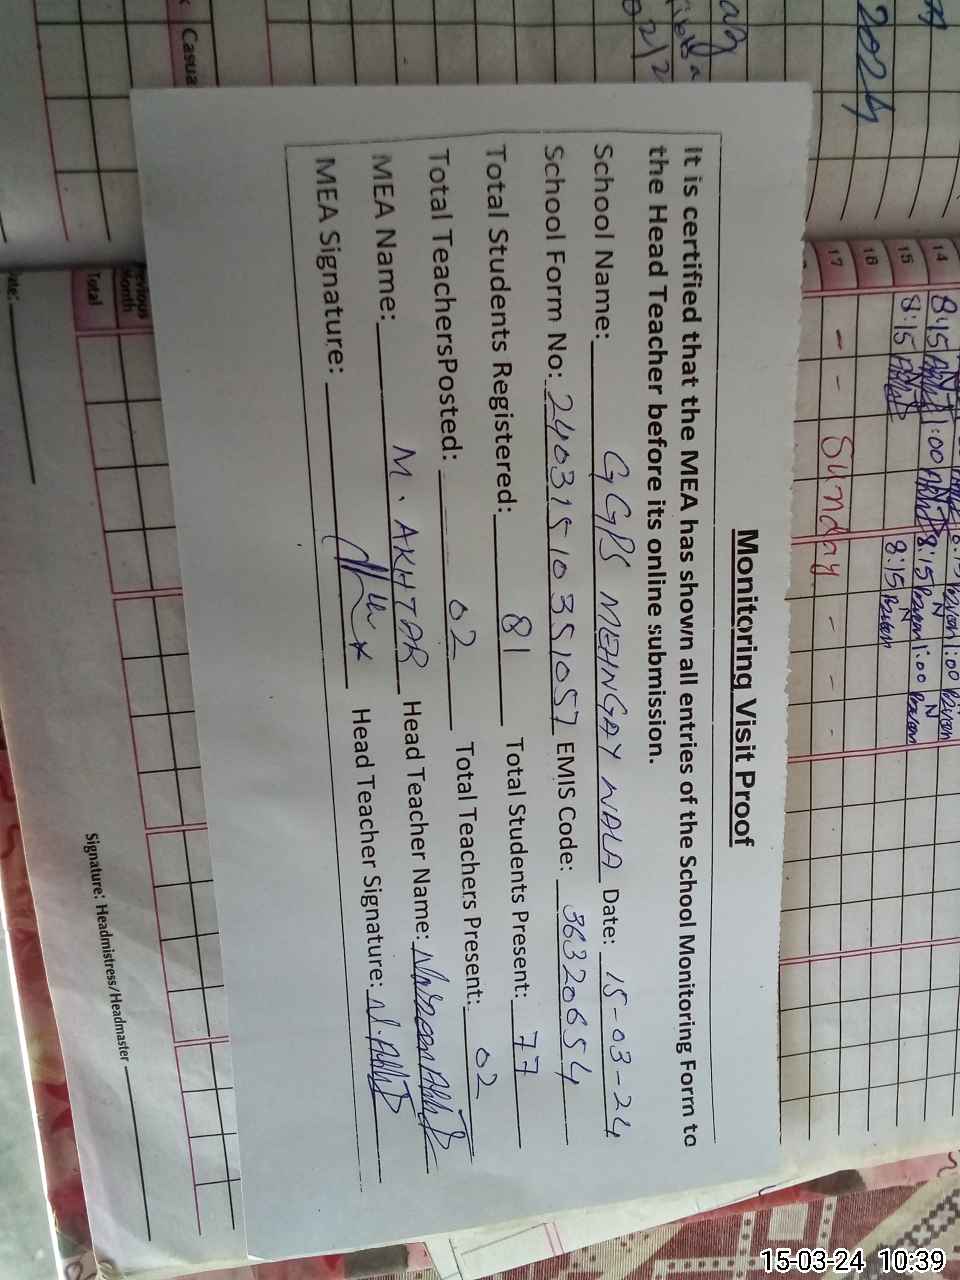 Monitoring Visit Proof
It is certified that the MEA has shown all entries of the School Monitoring Form to
the Head Teacher before its online submission.
School Name: GGPS MEHNGAY WALA Date: 15-03-24
School Form No: 24031510351057 EMIS Code: 36320654
Total Students Registered: 81 Total Students Present: 77
Total TeachersPosted: 02 Total Teachers Present: 02
MEA Name: M. AKHTAR Head Teacher Name:
MEA Signature: Head Teacher Signature:
2024
14 8:15 1:00 8:15 1:00
15 8:15 8:15
16
17 - - Sunday - - -
Casua
Previous
Month
Total
Signature: Headmistress/Headmaster
15-03-24 10:39